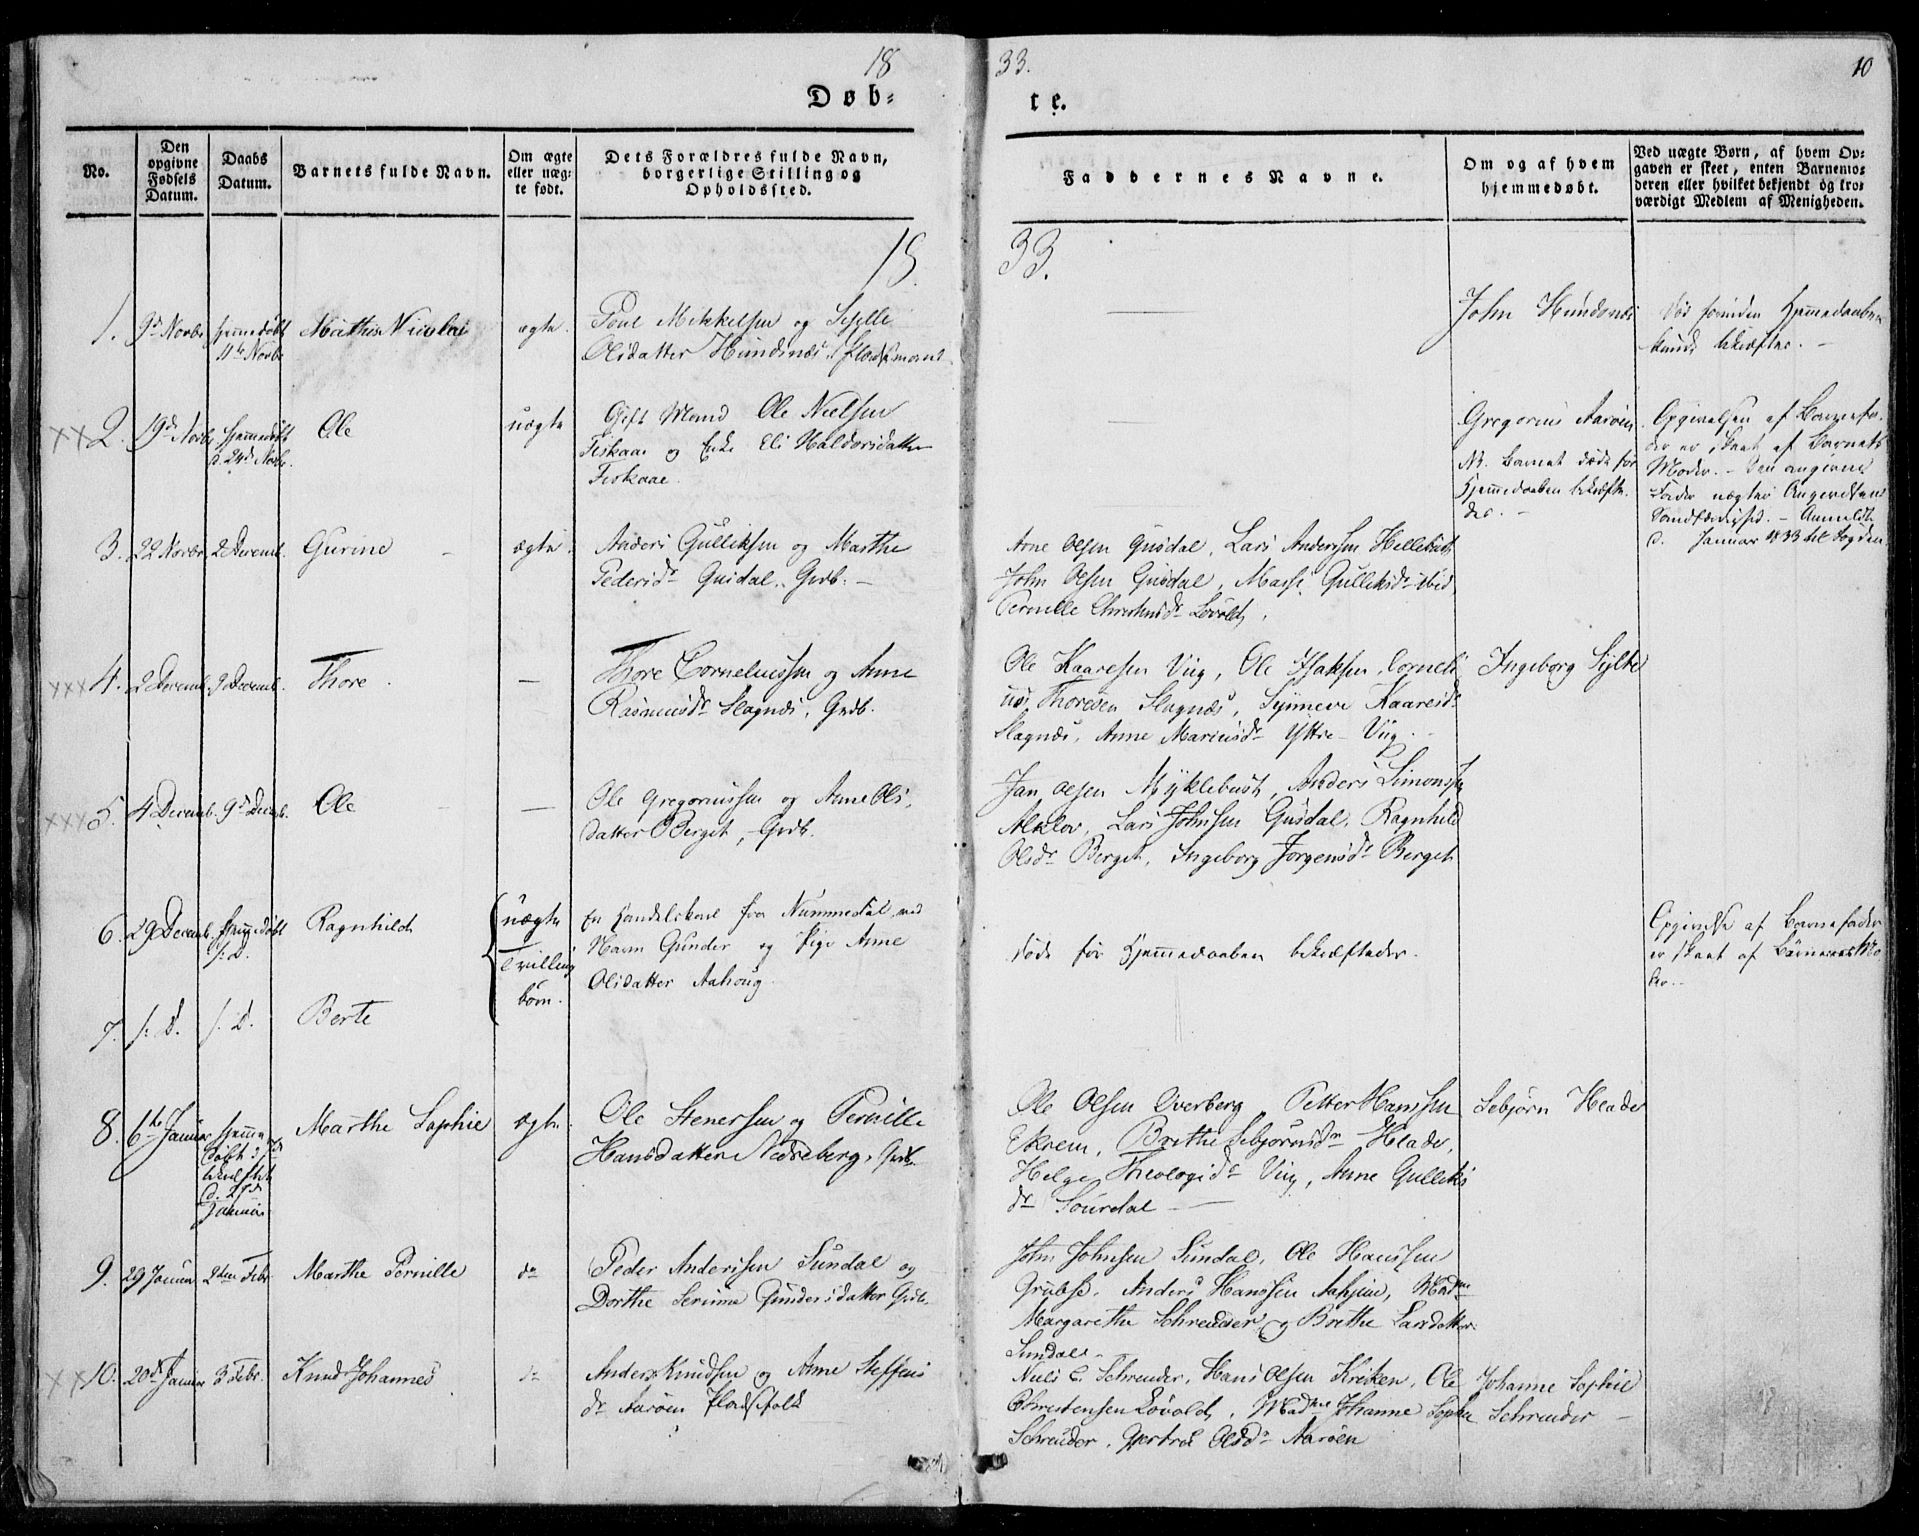 18
33.
10
Døb-
te.
No.
Den
opgivne
Fødsels
Datum.
Daabs
Datum.
Barnets fulde Navn.
Om ægte
eller uæg-
te født.
Dets Forældres fulde Navn,
borgerlige Stilling og
Opholdssted.
Faddernes Navne.
Om og af hvem
hjemmedøbt.
Ved uægte Børn, af hvem Op-
gaven er skeet, enten Barnemo-
deren eller hvilket bekjendt og tro-
værdigt Medlem af Menigheden.
18
33.
1.
9d Novbr
hjemmedøbt
11te Novbr
Mathis Nicolai
ægte.
Poul Mikkelsen og Syselle
Olsdatter Hundsnæs
John Hundsnæs
2.
19d Novbr
hjemmedøbt
d. 24d Novbr.
Ole
uægte
Gift Mand Ole Nielsen
Fiskaae og Enke Eli Haldorsdatter
Fiskaae.
Gregorius Aarøen
NB. Barnet døde før
Hjemmedaaben bekræfte-
des. -
Opgivelsen af Barnefa-
der er skeet af Barnets
Moder. - Den angivne
Fader nægter Angivelsens
Sandfærdighed. - Anmeldt
d. Januar 1833 til Fogden
3.
22 Novbr
2 Decemb.
Gurine
ægte.
Anders Gulliksen og Marthe
Pedersdr Gusdal. Grdb. -
Arne Olsen Gusdal, Lars Andersen
John Olsen Gusdal, Gulliksdr ibid
Pernille Christensdr Løvold,
4.
2 Decemb.
9 Decemb.
Thore.
-
Thore Corneliussen og Anne
Rasmusdr Slagnæs, Grdb.
Ole Kaaresen Viig, Ole Isaksen, Corneli-
us Thoresen Slagnæs, Synneve Kaaresdr
Slagnæs, Anne Mariusdr Yttre-Viig.
Ingeborg Sylte
5.
4 Decemb.
9d Decemb.
Ole
-
Ole Gregoriussen og Anne Ols-
datter Berget, - Grdb.
Jan Olsen Myklebust, Anders Simonsen
Alklov, Lars Johnsen Gusdal, Ragnhild
Olsdr Berget, Ingeborg Jørgensdr Berget
6.
29 Decemb.
hjemmedøbt
s. D.
Ragnhild
uægte
Tvilling
børn.
En Handelskarl fra Nummedal, ved
Navn Gunder og Pige Anne
Olsdatter Aahoug.
døde før Hjemmedaaben bekræftedes.
Opgivelse af Barnefader
er skeet af Børnenes Mo-
der. -
7.
s. D.
s. D.
Berte
8.
6te Januar
hjemme
døbt
d.
Januar
Marthe Sophie
ægte.
Ole Stenersen og Pernille
Hansdatter Nedreberg, Grdb.
Ole Olsen Overberg, Petter Hanssen
Ekrem, Brithe Sebjørnsdr Heade,
Helge Theologidr Viig, Anne Gulliks
dr Sourdal -
Sebjørn Heade
9.
29 Januar
2den Febr.
Marthe Pernille
do
Peder Andersen Sundal og
Dorthe Serine Gundersdatter Grdb.
John Johnsen Sundal, Ole Hanssen
Anders Hanssen Aahjem, Madme
Margarethe Schreuder og Brithe Larsdatter
Sundal. -
10.
20de Januar
3 Febr.
Knud Johannes
do
Anders Knudsen og Anne Steffens
dr Aarøen Pladsfolk
Niels C. Schreuder, Hans Olsen Kriken, Ole
Christensen Løvold, Madme Johanne Sophie
Schreuder, Gjertrud Olsdr Aarøen
Johanne Sophie
Schreuder -